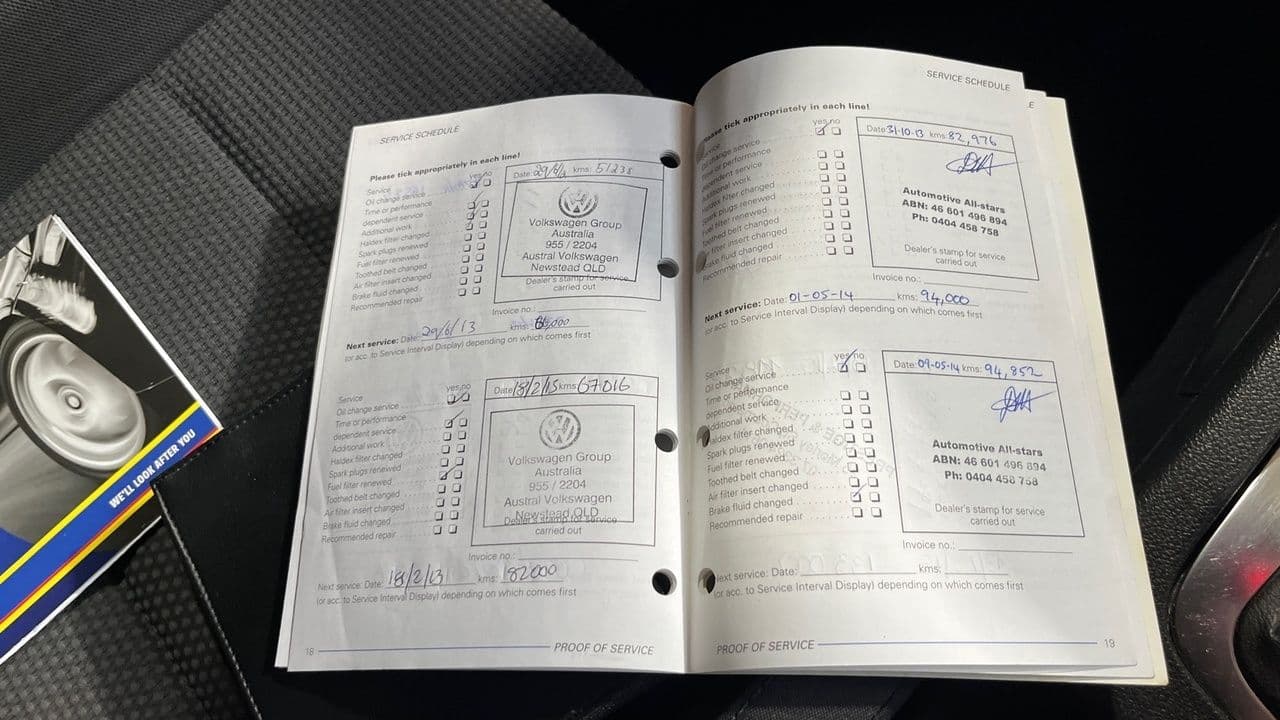 SERVICE SCHEDULE
Please tick appropriately in each line!
yes no
Service
Oil change service
Time or performance
dependent service
Additional work
Haldex filter changed
Spark plugs renewed
Fuel filter renewed
Toothed belt changed
Air filter insert changed
Brake fluid changed
Recommended repair
Date: kms: 51238
Volkswagen Group
Australia
955 / 2204
Austral Volkswagen
Newstead QLD
Dealer's stamp for service
carried out
Invoice no.:
Next service: Date: 29/6/13 kms:
(or acc. to Service Interval Display) depending on which comes first
yes no
Service
Oil change service
Time or performance
dependent service
Additional work
Haldex filter changed
Spark plugs renewed
Fuel filter renewed
Toothed belt changed
Air filter insert changed
Brake fluid changed
Recommended repair
Date: kms: 67016
Volkswagen Group
Australia
955 / 2204
Austral Volkswagen
Newstead QLD
Dealer's stamp for service
carried out
Invoice no.:
Next service: Date: 18/2/13 kms: 182000
(or acc. to Service Interval Display) depending on which comes first
18 PROOF OF SERVICE
SERVICE SCHEDULE
Please tick appropriately in each line!
yes no
Service
Oil change service
Time or performance
dependent service
Additional work
Haldex filter changed
Spark plugs renewed
Fuel filter renewed
Toothed belt changed
Air filter insert changed
Brake fluid changed
Recommended repair
Date: 31-10-13 kms: 82,976
Automotive All-stars
ABN: 46 601 496 894
Ph: 0404 458 758
Dealer's stamp for service
carried out
Invoice no.:
Next service: Date: 01-05-14 kms: 94,000
(or acc. to Service Interval Display) depending on which comes first
yes no
Service
Oil change service
Time or performance
dependent service
Additional work
Haldex filter changed
Spark plugs renewed
Fuel filter renewed
Toothed belt changed
Air filter insert changed
Brake fluid changed
Recommended repair
Date: 09-05-14 kms: 94,852
Automotive All-stars
ABN: 46 601 496 894
Ph: 0404 458 758
Dealer's stamp for service
carried out
Invoice no.:
Next service: Date: kms:
(or acc. to Service Interval Display) depending on which comes first
PROOF OF SERVICE 19
WE'LL LOOK AFTER YOU